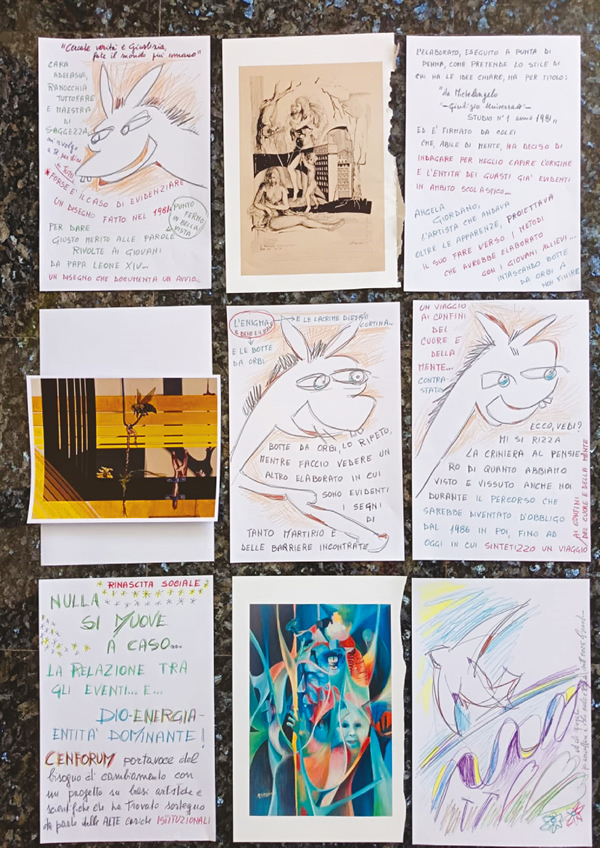 "Cercate verità e Giustizia,
fate il mondo più umano"
CARA
ADELASIA,
RANOCCHIA
TUTTOFARE
E MAESTRA
DI
SAGGEZZA,
mi rivolgo
a te per dire
Tutto
FORSE È IL CASO DI EVIDENZIARE
UN DISEGNO FATTO NEL 1981.
PUNTO
FERMO
IN BELLA
VISTA
PER DARE
GIUSTO MERITO ALLE PAROLE
RIVOLTE AI GIOVANI
DA PAPA LEONE XIV...
UN DISEGNO CHE DOCUMENTA UN AVVIO...
L'ELABORATO, ESEGUITO A PUNTA DI
PENNA, COME PRETENDE LO STILE DI
CHI HA LE IDEE CHIARE, HA PER TITOLO:
"da Michelangelo
-Giudizio Universale-
STUDIO N°1 anno 1981"
ED È FIRMATO DA COLEI
CHE, ABILE DI MENTE, HA DECISO DI
INDAGARE PER MEGLIO CAPIRE L'ORIGINE
E L'ENTITÀ DEI GUASTI GIA' EVIDENTI
IN AMBITO SCOLASTICO...
ANGELA
GIORDANO,
L'ARTISTA CHE ANDAVA
OLTRE LE APPARENZE, PROIETTAVA
IL SUO FARE VERSO I METODI
CHE AVREBBE ELABORATO
CON I GIOVANI ALLIEVI...
INTASCANDO BOTTE
DA ORBI A
NON FINIRE
L'ENIGMA
E LE LACRIME DIETRO
CORTINA...
E LE BOTTE
DA ORBI.
BOTTE DA ORBI, LO RIPETO,
MENTRE FACCIO VEDERE UN
ALTRO ELABORATO IN CUI
SONO EVIDENTI
I SEGNI
DI
TANTO MARTIRIO E
DELLE BARRIERE INCONTRATE
UN VIAGGIO
AI CONFINI
DEL
CUORE E
DELLA
MENTE...
CONTRA-
STATO
ECCO, VEDI?
MI SI RIZZA
LA CRINIERA AL PENSIE-
RO DI QUANTO ABBIAMO
VISTO E VISSUTO ANCHE NOI
DURANTE IL PERCORSO CHE
SAREBBE DIVENTATO D'OBBLIGO
DAL 1986 IN POI, FINO AD
OGGI IN CUI SINTETIZZO UN VIAGGIO
AI CONFINI
DEL CUORE E DELLA MENTE
RINASCITA SOCIALE
NULLA
SI MUOVE
A CASO...
LA RELAZIONE TRA
GLI EVENTI... E...
DIO-ENERGIA-
ENTITA' DOMINANTE!
CENFORUM portavoce del
bisogno di cambiamento con
un progetto su basi artistiche e
scientifiche che ha trovato sostegno
da parte delle ALTE cariche ISTITUZIONALI